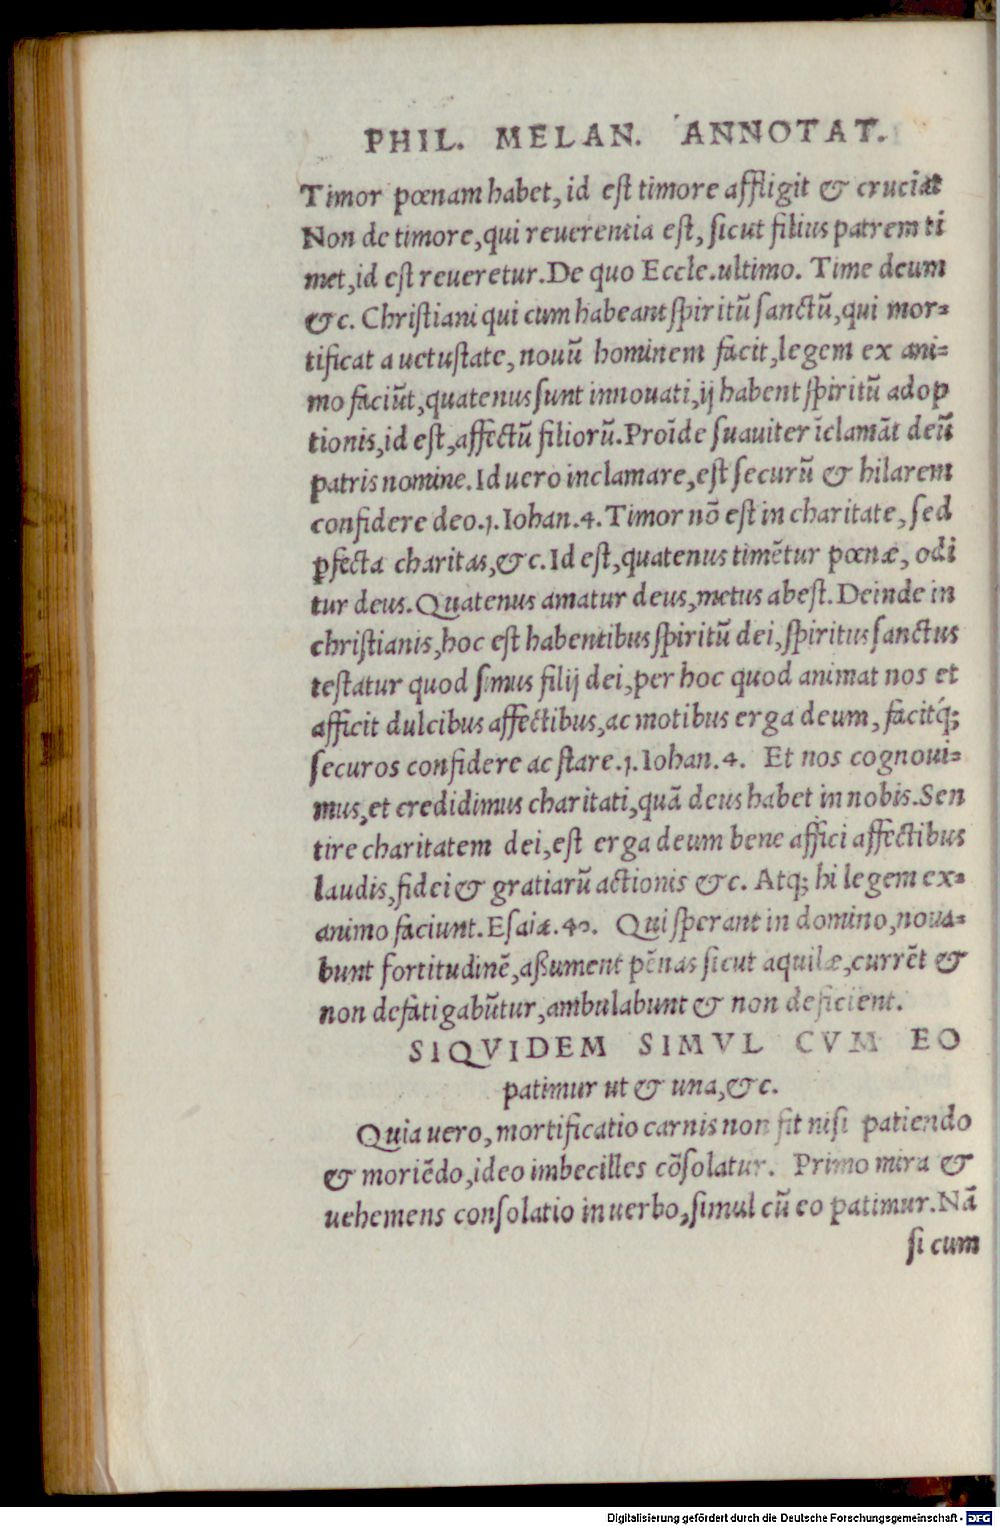 PHIL. MELAN. ANNOTAT.
Timor pœnam habet, id eſt timore affligit & cruciat
Non de timore, qui reuerentia eſt, ſicut filius patrem ti
met, id eſt reueretur. De quo Eccle. ultimo. Time deum
&c. Chriſtiani qui cum habeant ſpiritū ſanctū, qui mor=
tificat a uetuſtate, nouū hominem facit, legem ex ani=
mo faciūt, quatenus ſunt innouati, ij habent ſpiritū adop
tionis, id eſt, affectū filiorū. Proīde ſuauiter īclamāt deū
patris nomine. Id uero inclamare, eſt ſecurū & hilarem
confidere deo. 1. Iohan. 4. Timor nō eſt in charitate, ſed
ꝑfecta charitas, &c. Id eſt, quatenus timētur pœnæ, odi
tur deus. Quatenus amatur deus, metus abeſt. Deinde in
chriſtianis, hoc eſt habentibus ſpiritū dei, ſpiritus ſanctus
teſtatur quod ſimus filij dei, per hoc quod animat nos et
afficit dulcibus affectibus, ac motibus erga deum, facitq́;
ſecuros confidere ac ſtare. 1. Iohan. 4. Et nos cognoui=
mus, et credidimus charitati, quā deus habet in nobis. Sen
tire charitatem dei, eſt erga deum bene affici affectibus
laudis, fidei & gratiarū actionis &c. Atq; hi legem ex=
animo faciunt. Eſaiæ. 40. Qui ſperant in domino, noua=
bunt fortitudinē, aßument pēnas ſicut aquilæ, currēt &
non defatigabūtur, ambulabunt & non deficient.
SIQVIDEM SIMVL CVM EO
patimur ut & una, &c.
Quia uero, mortificatio carnis non fit niſi patiendo
& moriēdo, ideo imbecilles cōſolatur. Primo mira &
uehemens conſolatio in uerbo, ſimul cū eo patimur. Nā
ſi cum
Digitalisierung gefördert durch die Deutsche Forschungsgemeinschaft - DFG